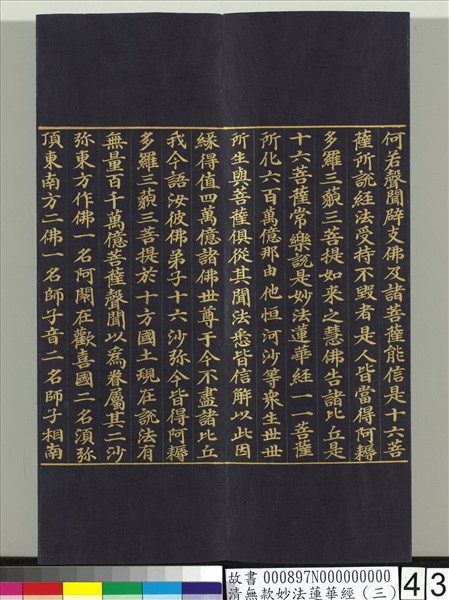 何若聲聞辟支佛及諸菩薩能信是十六菩
薩所說經法受持不毀者是人皆當得阿耨
多羅三藐三菩提如來之慧佛告諸比丘是
十六菩薩常樂說是妙法蓮華經一一菩薩
所化六百萬億那由他恒河沙等衆生世世
所生與菩薩俱從其聞法悉皆信解以此因
緣得值四萬億諸佛世尊于今不盡諸比丘
我今語汝彼佛弟子十六沙弥今皆得阿耨
多羅三藐三菩提於十方國土現在說法有
無量百千萬億菩薩聲聞以為眷屬其二沙
弥東方作佛一名阿閦在歡喜國二名湏弥
頂東南方二佛一名師子音二名師子相南
故書 000897N000000000
清無款妙法蓮華經(三)
43